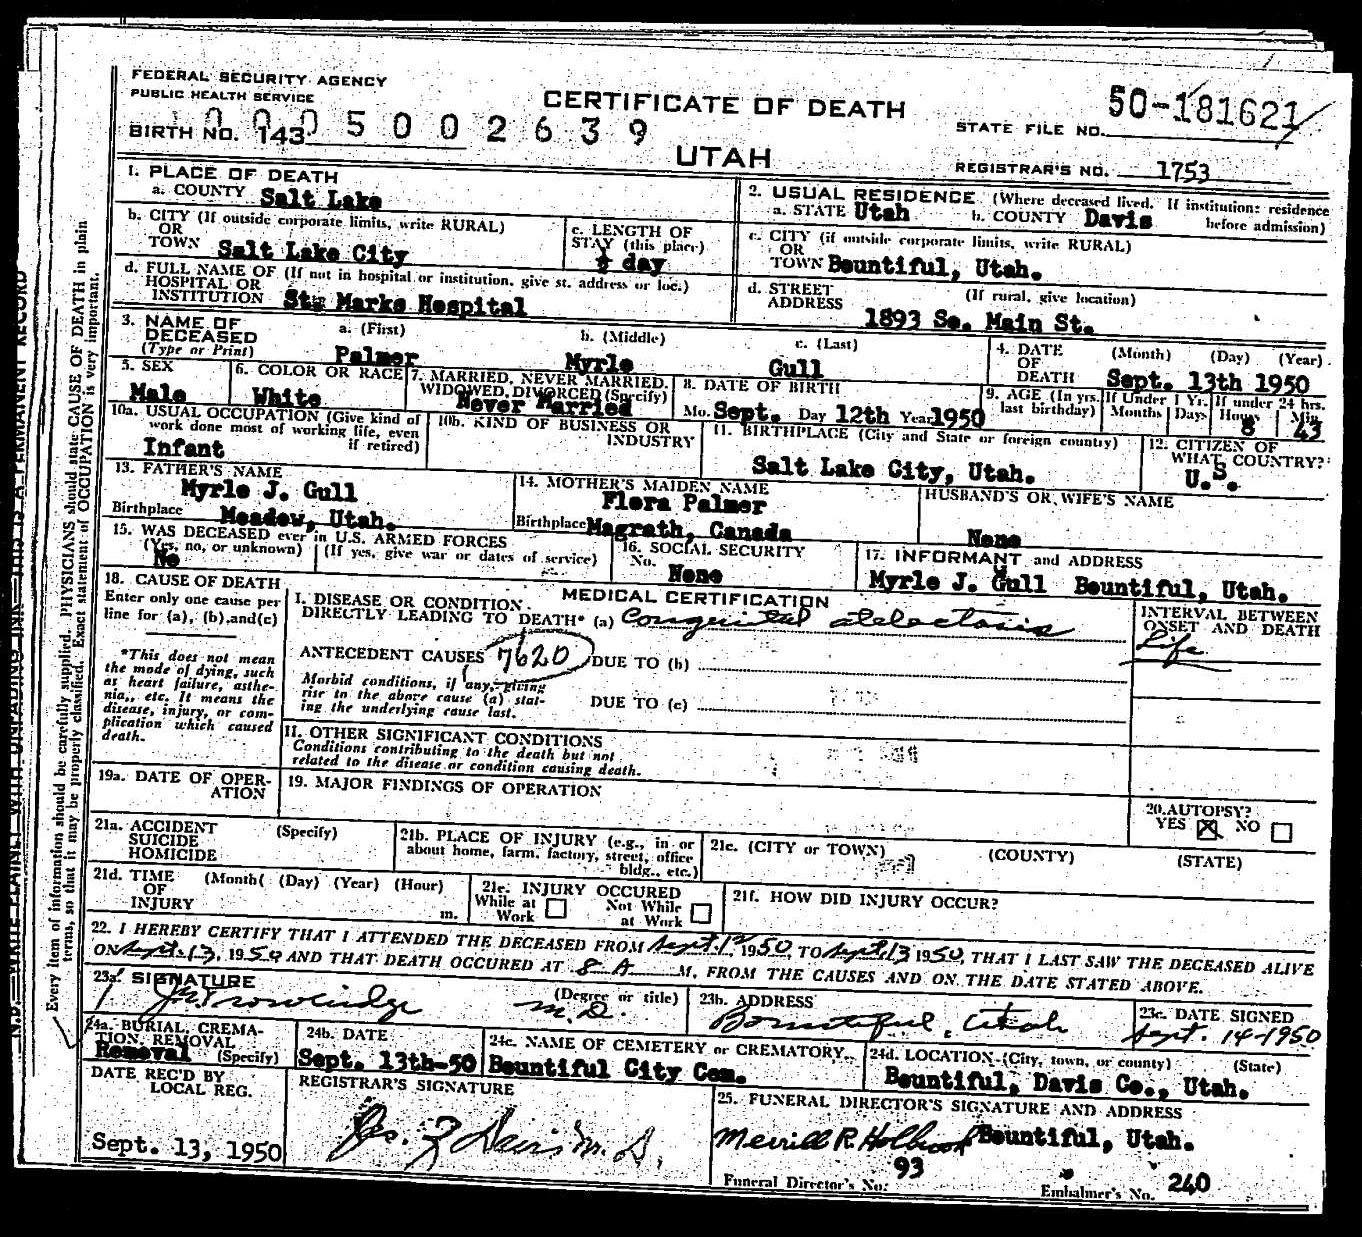 FEDERAL SECURITY AGENCY
PUBLIC HEALTH SERVICE
CERTIFICATE OF DEATH
UTAH
BIRTH NO. 143
0005002639
STATE FILE NO. 50-181621
REGISTRAR'S NO. 1753
1. PLACE OF DEATH
a. COUNTY Salt Lake
b. CITY (If outside corporate limits, write RURAL)
OR
TOWN Salt Lake City
c. LENGTH OF
STAY (this place)
day
d. FULL NAME OF (If not in hospital or institution, give st. address or loc.)
HOSPITAL OR
INSTITUTION St. Marks Hospital
2. USUAL RESIDENCE (Where deceased lived. If institution: residence
before admission)
a. STATE Utah b. COUNTY Davis
c. CITY (if outside corporate limits, write RURAL)
OR
TOWN Bountiful, Utah.
d. STREET (If rural, give location)
ADDRESS
1893 So. Main St.
3. NAME OF
DECEASED
(Type or Print)
a. (First) b. (Middle) c. (Last)
Palmer Myrle Gull
4. DATE (Month) (Day) (Year)
OF
DEATH Sept. 13th 1950
5. SEX
Male
6. COLOR OR RACE
White
7. MARRIED, NEVER MARRIED,
WIDOWED, DIVORCED (Specify)
Never Married
8. DATE OF BIRTH
Mo. Sept. Day 12th Year 1950
9. AGE (In yrs. last birthday)
If Under 1 Yr.
Months Days
If under 24 hrs.
Hours Min.
8 43
10a. USUAL OCCUPATION (Give kind of
work done most of working life, even
if retired)
Infant
10b. KIND OF BUSINESS OR
INDUSTRY
11. BIRTHPLACE (City and State or foreign country)
Salt Lake City, Utah.
12. CITIZEN OF
WHAT COUNTRY?
U.S.
13. FATHER'S NAME
Myrle J. Gull
Birthplace Meadow, Utah.
14. MOTHER'S MAIDEN NAME
Flora Palmer
Birthplace Magrath, Canada
HUSBAND'S OR WIFE'S NAME
None
15. WAS DECEASED ever in U.S. ARMED FORCES
(Yes, no, or unknown) (If yes, give war or dates of service)
No
16. SOCIAL SECURITY
No.
None
17. INFORMANT and ADDRESS
Myrle J. Gull Bountiful, Utah.
18. CAUSE OF DEATH
Enter only one cause per
line for (a), (b), and (c)
*This does not mean
the mode of dying, such
as heart failure, asthe-
nia, etc. It means the
disease, injury, or com-
plication which caused
death.
MEDICAL CERTIFICATION
I. DISEASE OR CONDITION
DIRECTLY LEADING TO DEATH* (a) Congenital atelectasis
ANTECEDENT CAUSES 7620 DUE TO (b)
Morbid conditions, if any, giving
rise to the above cause (a) stat-
ing the underlying cause last.
DUE TO (c)
INTERVAL BETWEEN
ONSET AND DEATH
Life
II. OTHER SIGNIFICANT CONDITIONS
Conditions contributing to the death but not
related to the disease or condition causing death.
19a. DATE OF OPER-
ATION
19. MAJOR FINDINGS OF OPERATION
20. AUTOPSY?
YES X NO
21a. ACCIDENT (Specify)
SUICIDE
HOMICIDE
21b. PLACE OF INJURY (e.g., in or
about home, farm, factory, street, office
bldg., etc.)
21c. (CITY or TOWN) (COUNTY) (STATE)
21d. TIME (Month( (Day) (Year) (Hour)
OF
INJURY m.
21e. INJURY OCCURED
While at Work Not While at Work
21f. HOW DID INJURY OCCUR?
22. I HEREBY CERTIFY THAT I ATTENDED THE DECEASED FROM Sept. 12, 1950, TO Sept. 13 1950, THAT I LAST SAW THE DECEASED ALIVE
ON Sept. 13, 1950 AND THAT DEATH OCCURED AT 8 A M, FROM THE CAUSES AND ON THE DATE STATED ABOVE.
23a. SIGNATURE (Degree or title)
Trowbridge M.D.
23b. ADDRESS
Bountiful, Utah
23c. DATE SIGNED
Sept. 14-1950
24a. BURIAL, CREMA-
TION, REMOVAL
(Specify)
Removal
24b. DATE
Sept. 13th-50
24c. NAME OF CEMETERY or CREMATORY
Bountiful City Cem.
24d. LOCATION (City, town, or county) (State)
Bountiful, Davis Co., Utah.
DATE REC'D BY
LOCAL REG.
Sept. 13, 1950
REGISTRAR'S SIGNATURE
Davis M. D.
25. FUNERAL DIRECTOR'S SIGNATURE AND ADDRESS
Merrill R. Holbrook Bountiful, Utah.
Funeral Director's No: 93
Embalmer's No. 240
Every item of information should be carefully supplied. PHYSICIANS should state CAUSE OF DEATH in plain
terms, so that it may be properly classified. Exact statement of OCCUPATION is very important.
N.B.—WRITE PLAINLY WITH UNFADING INK—THIS IS A PERMANENT RECORD